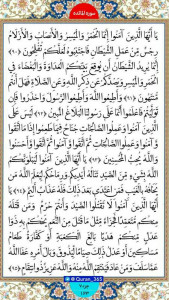 سورة المائدة
يَا أَيُّهَا الَّذِينَ آمَنُوا إِنَّمَا الْخَمْرُ وَالْمَيْسِرُ وَالْأَنْصَابُ وَالْأَزْلَامُ
رِجْسٌ مِنْ عَمَلِ الشَّيْطَانِ فَاجْتَنِبُوهُ لَعَلَّكُمْ تُفْلِحُونَ ﴿٩٠﴾
إِنَّمَا يُرِيدُ الشَّيْطَانُ أَنْ يُوقِعَ بَيْنَكُمُ الْعَدَاوَةَ وَالْبَغْضَاءَ فِي
الْخَمْرِ وَالْمَيْسِرِ وَيَصُدَّكُمْ عَنْ ذِكْرِ اللَّهِ وَعَنِ الصَّلَاةِ فَهَلْ أَنْتُمْ
مُنْتَهُونَ ﴿٩١﴾ وَأَطِيعُوا اللَّهَ وَأَطِيعُوا الرَّسُولَ وَاحْذَرُوا فَإِنْ
تَوَلَّيْتُمْ فَاعْلَمُوا أَنَّمَا عَلَى رَسُولِنَا الْبَلَاغُ الْمُبِينُ ﴿٩٢﴾ لَيْسَ عَلَى
الَّذِينَ آمَنُوا وَعَمِلُوا الصَّالِحَاتِ جُنَاحٌ فِيمَا طَعِمُوا إِذَا مَا اتَّقَوْا
وَآمَنُوا وَعَمِلُوا الصَّالِحَاتِ ثُمَّ اتَّقَوْا وَآمَنُوا ثُمَّ اتَّقَوْا وَأَحْسَنُوا
وَاللَّهُ يُحِبُّ الْمُحْسِنِينَ ﴿٩٣﴾ يَا أَيُّهَا الَّذِينَ آمَنُوا لَيَبْلُوَنَّكُمُ
اللَّهُ بِشَيْءٍ مِنَ الصَّيْدِ تَنَالُهُ أَيْدِيكُمْ وَرِمَاحُكُمْ لِيَعْلَمَ اللَّهُ مَنْ
يَخَافُهُ بِالْغَيْبِ فَمَنِ اعْتَدَى بَعْدَ ذَلِكَ فَلَهُ عَذَابٌ أَلِيمٌ ﴿٩٤﴾ يَا
أَيُّهَا الَّذِينَ آمَنُوا لَا تَقْتُلُوا الصَّيْدَ وَأَنْتُمْ حُرُمٌ وَمَنْ قَتَلَهُ
مِنْكُمْ مُتَعَمِّدًا فَجَزَاءٌ مِثْلُ مَا قَتَلَ مِنَ النَّعَمِ يَحْكُمُ بِهِ ذَوَا
عَدْلٍ مِنْكُمْ هَدْيًا بَالِغَ الْكَعْبَةِ أَوْ كَفَّارَةٌ طَعَامُ
مَسَاكِينَ أَوْ عَدْلُ ذَلِكَ صِيَامًا لِيَذُوقَ وَبَالَ أَمْرِهِ عَفَا اللَّهُ
عَمَّا سَلَفَ وَمَنْ عَادَ فَيَنْتَقِمُ اللَّهُ مِنْهُ وَاللَّهُ عَزِيزٌ ذُو انْتِقَامٍ ﴿٩٥﴾
@Quran_365
جزء ٧
١٢٣